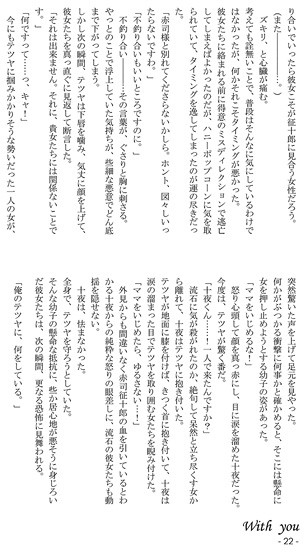 り合いでいったら彼女こそが征十郎に見合う女性だろう。
（また――――、）
ズキリ、と心臓が痛む。
考えても詮無いことで、普段はそんなに気にしているわけで
はなかったが、何かそれこそタイミングが悪かった。
彼女たちに絡まれる前に得意のミスディレクションで逃亡
してしまえばよかったのだが、ハニーポップコーンに気を取
られていて、タイミングを逸してしまったのが運の尽きだっ
た。
「赤司様と別れてくださらないかしら。ホント、図々しいっ
たらないですわ。」
「不釣り合いもいいところですのに。」
不釣り合い――――その言葉が、ぐさりと胸に刺さる。
やっとのことで浮上していた気持ちが、些細な悪意でどん底
まで下がってしまう。
しかし次の瞬間、テツヤは下唇を噛み、気丈に顔を上げて、
彼女たちを真っ直ぐに見返して断言した。
「それは出来ません。それに、貴女たちには関係ないことで
「何ですって……っ、キャ！」
今にもテツヤに掴みかかりそうな勢いだった一人の女が、
突然驚いた声を上げて足元を見やった。
何かがぶつかる衝撃に何事かと確かめると、そこには懸命に
女を押し止めようとする幼子の姿があった。
「ママをいじめるな！」
怒り心頭して顔を真っ赤にし、目に涙を溜めた十夜だった。
今度は、テツヤが驚く番だ。
「十夜くん……！一人で来たんですか？」
流石に気が殺がれたのか、絶句して呆然と立ち尽くす女か
ら離れて、十夜はテツヤに抱き付いた。
テツヤが地面に膝を付けば、きつく首に抱き付いて、十夜は
涙の溜まった目でテツヤを取り囲む女たちを睨み付けた。
「ママをいじめたら、ゆるさない……！」
外見からも間違いなく赤司征十郎の血を引いているとわ
かる十夜からの純粋な怒りの眼差しに、流石の彼女たちも動
揺を隠せない。
十夜は、怯まなかった。
全身で、テツヤを守ろうとしていた。
そんな幼子の懸命な抵抗に些か居心地が悪そうに身じろい
だ彼女たちは、次の瞬間、更なる恐怖に見舞われる。
「俺のテツヤに、何をしている。」
With you
- 22 -